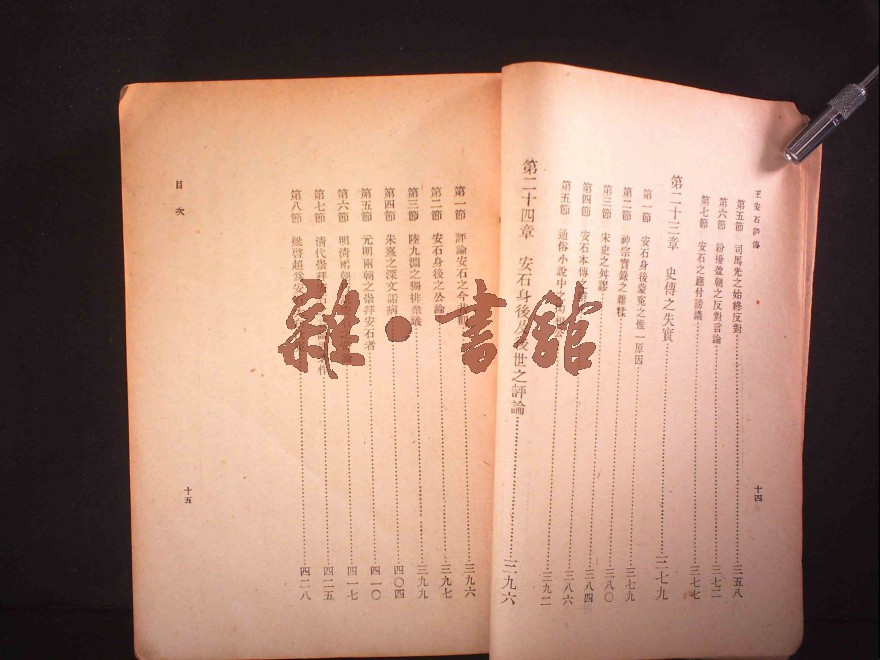 王安石評傳
第五節 司馬光之始終反對 三五八
第六節 紛擾盈朝之反對言論 三七二
第七節 安石之應付謗議 三七七
第二十三章 史傳之失實 三七九
第一節 安石身後蒙冤之惟一原因 三七九
第二節 神宗實錄之雜糅 三七九
第三節 宋史之舛謬 三八〇
第四節 安石本傳 三八四
第五節 通俗小說中之 三九二
第二十四章 安石身後及後世之評論 三九六
十四
目次
第一節 評論安石之今 三九六
第二節 安石身後之公論 三九七
第三節 陸九淵之獨排衆議 三九九
第四節 朱熹之深文詬病 四〇四
第五節 元明兩朝之崇拜安石者 四一〇
第六節 明清兩朝 四一七
第七節 清代崇拜 四二五
第八節 梁啓超 四二八
十五
雜·書館